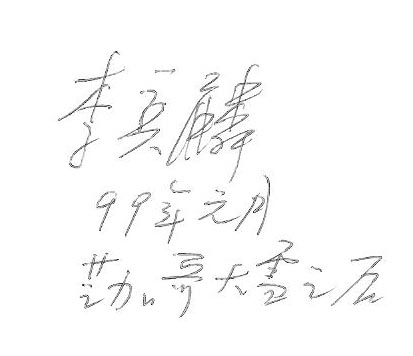 李麟
99年元月
芝加哥大雪之后